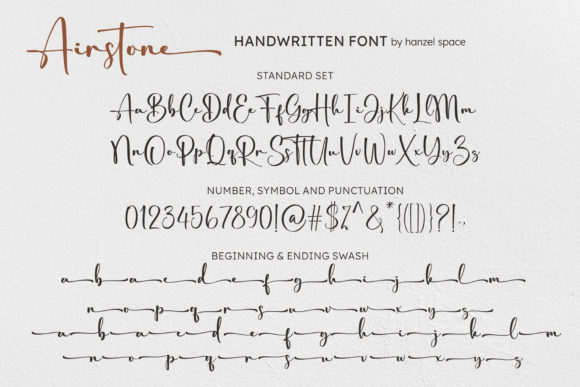 Airstone HANDWRITTEN FONT by hanzel space
STANDARD SET
AaBbCcDdEeFfGgHhIiJjKkLlMm
NnOoPpQqRrSsTtUuVvWwXxYyZz
NUMBER, SYMBOL AND PUNCTUATION
01234567890!@#$%^&*{([])}?!.,
BEGINNING & ENDING SWASH
a b c d e f g h i j k l m
n o p q r s u v w x y z
a b c d e f g h i j k l m
n o p q r s u v w x y z